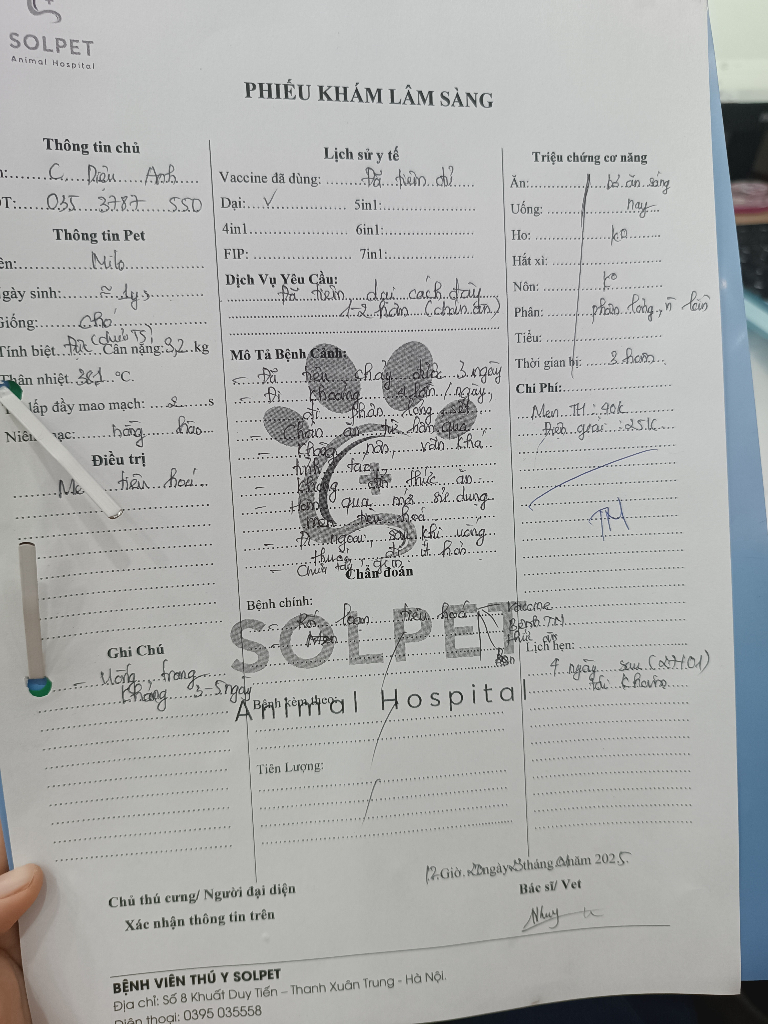 SOLPET
Animal Hospital
PHIẾU KHÁM LÂM SÀNG
Thông tin chủ
C. Diệu Anh
T: 035 3787 550
Thông tin Pet
ên: Milo
gày sinh: ≈ 1y
Giống: chó
Tính biệt Đực (chưa TS) Cân nặng: 3,2 kg
hân nhiệt 38.1 °C.
lấp đầy mao mạch: 2 s
Niêm mạc: hồng hào
Điều trị
Men tiêu hoá
Ghi Chú
kháng 3-5 ngày
Lịch sử y tế
Vaccine đã dùng: Đã tiêm đủ
Dại: V 5in1:
4in1 6in1:
FIP: 7in1:
Dịch Vụ Yêu Cầu:
Đã tiêm dại cách đây
1-2 tuần (chán ăn)
Mô Tả Bệnh Cảnh:
- Đã tiêu chảy được 3 ngày
- Đi khoảng 4 lần / ngày,
đi phân lỏng
- Chán ăn từ hôm qua,
- Không nôn, vẫn khá
tỉnh táo
- Không đổi thức ăn
- Hôm qua mới sử dụng
men tiêu hoá
- Đi ngoài, sau khi uống
thuốc đi ít hơn
- Chưa tẩy giun
Chẩn đoán
Bệnh chính:
- Rối loạn tiêu hoá
Vaccine
Bệnh TN
thức ăn
SOLPET
Animal Hospital
Bệnh kèm theo:
Tiên Lượng:
Triệu chứng cơ năng
Ăn: bỏ ăn sáng
Uống: nay
Ho: ko
Hắt xì:
Nôn: ko
Phân: phân lỏng, n lần
Tiểu:
Thời gian bị: 3 hôm
Chi Phí:
Men TH: 90k
Điện giải: 25k
TM
Lịch hẹn:
4 ngày sau (27/01)
tái khám
12 Giờ ngày 23 tháng năm 2025
Bác sĩ/ Vet
Nhuy
Chủ thú cưng/ Người đại diện
Xác nhận thông tin trên
BỆNH VIỆN THÚ Y SOLPET
Địa chỉ: Số 8 Khuất Duy Tiến – Thanh Xuân Trung - Hà Nội.
Điện thoại: 0395 035558